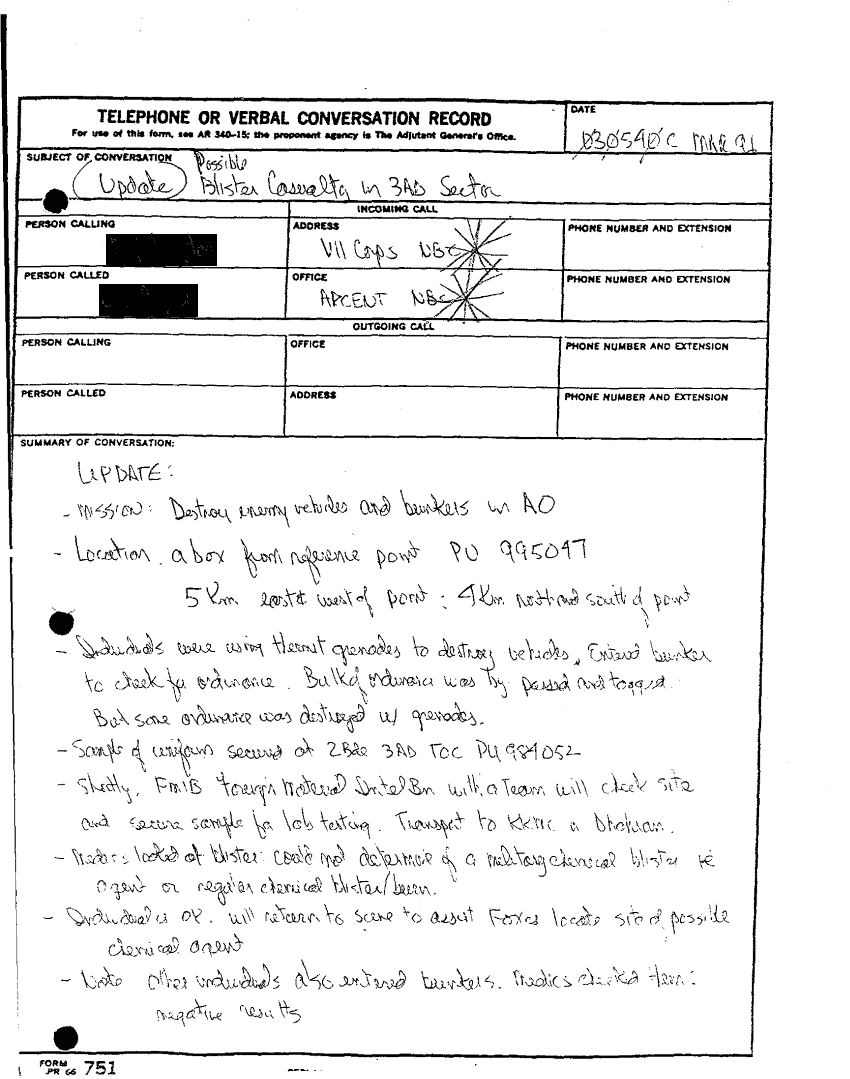 TELEPHONE OR VERBAL CONVERSATION RECORD
For use of this form, see AR 340-15; the proponent agency is The Adjutant General's Office.
DATE
030540C MAR 91
SUBJECT OF CONVERSATION
Update Possible Blister Casualty in 3AD Sector
INCOMING CALL
PERSON CALLING
ADDRESS
VII Corps NBC
PHONE NUMBER AND EXTENSION
PERSON CALLED
OFFICE
ARCENT NBC
PHONE NUMBER AND EXTENSION
OUTGOING CALL
PERSON CALLING
OFFICE
PHONE NUMBER AND EXTENSION
PERSON CALLED
ADDRESS
PHONE NUMBER AND EXTENSION
SUMMARY OF CONVERSATION:
UPDATE:
- MISSION: Destroy enemy vehicles and bunkers in AO
- Location. a box from reference point PU 995047
5 Km east & west of point: 4 Km north and south of point
- Individuals were using thermit grenades to destroy vehicles. Entered bunker
to check for ordinance. Bulk of ordinance was by passed and togged.
But some ordinance was destroyed w/ grenades.
- Sample of uniform secured at 2Bde 3AD TOC PU 984052
- Shortly, FMIB Foreign Material Intel Bn with a Team will check site
and secure sample for lab testing. Transport to KKMC or Dhahran.
- Medics looked at blister: could not determine if a military chemical blister
agent or regular chemical blister/burn.
- Individual is OK. will return to scene to assist Foxes locate site of possible
chemical agent
- Note other individuals also entered bunkers. Medics checked them:
negative results
FORM
751